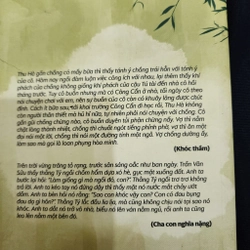 Thu Hà gần chồng có mấy bữa thì thấy tánh ý chồng trái hẳn với tánh
của cô. Hôm nay ngồi đàm luận việc công ích với nhau, lại thêm thấy khí
phách của chồng không giống khí phách của cậu Tú tài đến nhà cô hồi
tháng trước. Tuy cô buồn nhưng mà có Công Cẩn ở nhà, có người tới lui
nói chuyện chơi vui, nên sự buồn của cô còn có khuây lảng được chút
đỉnh. Cách ít bữa sau khai trường Công Cẩn đi học rồi, Thu Hà không
còn người thân thiết mà hủ hỉ nữa, tự nhiên phải nói chuyện với chồng. Cô
gần gũi chồng chừng nào, cô buồn duyên tủi phận chừng nấy. Vợ thì nắm
chặt lòng thành nhất, chồng thì chuốt ngót tiếng phỉnh phờ, vợ thì ăn một
đọi nói một lời, chồng thì nói một đường tính một ngả. Vợ chồng dường ấy,
làm sao mà gọi là loan phụng hòa minh.
(Khóc thầm)
Trên trời vừng trăng tỏ rạng, trước sân sáng cóc như ban ngày. Trần Văn
Sửu thấy thằng Tý ngồi chồm hổm dựa xó hè, gục mặt xuống đất. Anh ta
bước lại hỏi: "Làm giống gì mà ngồi đó, con?" Thằng Tý ngồi trơ trơ không
trả lời. Anh ta kéo tay nó đứng dậy thì thấy mặt nó nước mắt chảy ướt
dầm. Anh ta chưng hửng, nên hỏi: "Sao con khóc vậy con? Con có đau bụng
đau gì hay sao?" Thằng Tý lắc đầu ba lần, mà cũng không chịu nói tại sao nó
khóc. Anh ta dắt nó trở vô nhà, biểu nó lên ván nằm ngủ, rồi anh ta cũng
leo lên nằm một bên đó.
(Cha con nghĩa nặng)